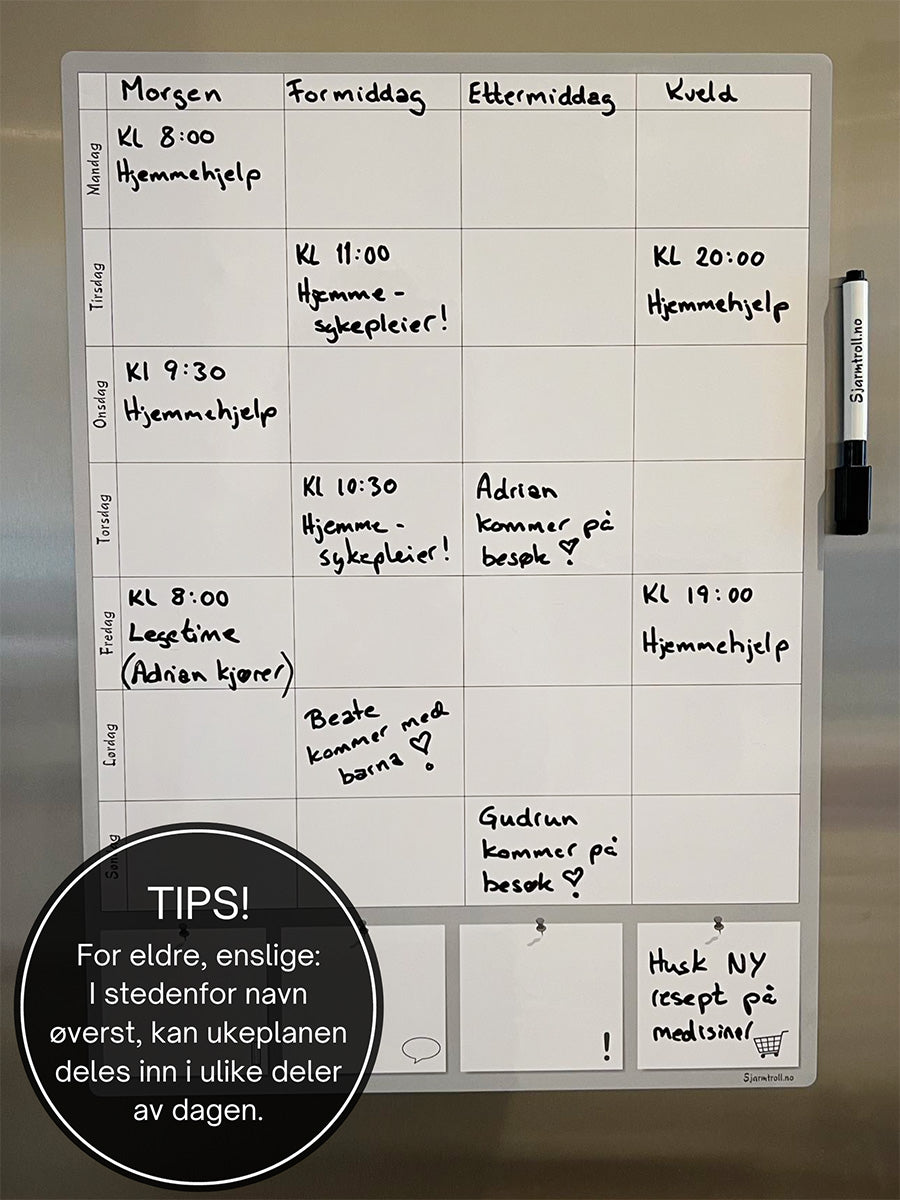 Morgen
Formiddag
Ettermiddag
Kveld
Mandag
Kl 8:00
Hjemmehjelp
Tirsdag
Kl 11:00
Hjemme-
sykepleier!
Kl 20:00
Hjemmehjelp
Onsdag
Kl 9:30
Hjemmehjelp
Torsdag
Kl 10:30
Hjemme-
sykepleier!
Adrian
kommer på
besøk
Fredag
Kl 8:00
Legetime
(Adrian kjører)
Kl 19:00
Hjemmehjelp
Lørdag
Beate
kommer med
barna
Gudrun
kommer på
besøk
!
Husk NY
resept på
medisiner
Sjarmtroll.no
Sjarmtroll.no
TIPS!
For eldre, enslige:
I stedenfor navn
øverst, kan ukeplanen
deles inn i ulike deler
av dagen.